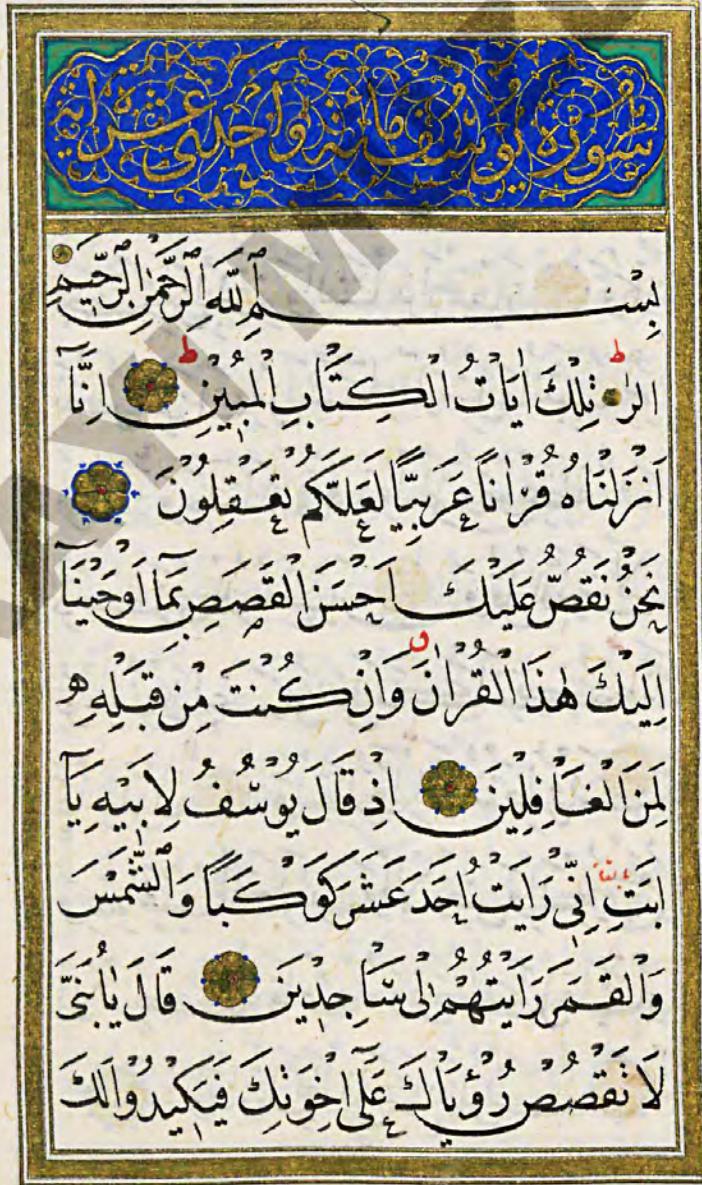 سُورَةُ يُوسُفَ مائة واحدى عشرة اية
بِسْمِ ٱللَّهِ ٱلرَّحْمٰنِ ٱلرَّحِيمِ
الٓرٰ ط تِلْكَ اٰيَاتُ الْكِتَابِ الْمُبِينِ ط اِنَّٓا
اَنْزَلْنَاهُ قُرْاٰنًا عَرَبِيًّا لَعَلَّكُمْ تَعْقِلُونَ
نَحْنُ نَقُصُّ عَلَيْكَ اَحْسَنَ الْقَصَصِ بِمَٓا اَوْحَيْنَٓا
اِلَيْكَ هٰذَا الْقُرْاٰنَ ق وَاِنْ كُنْتَ مِنْ قَبْلِهِ
لَمِنَ الْغَافِلِينَ اِذْ قَالَ يُوسُفُ لِاَبِيهِ يَٓا
اَبَتِ اِنِّي رَاَيْتُ اَحَدَ عَشَرَ كَوْكَبًا وَالشَّمْسَ
وَالْقَمَرَ رَاَيْتُهُمْ لِي سَاجِدِينَ قَالَ يَابُنَيَّ
لَا تَقْصُصْ رُؤْيَاكَ عَلٰٓى اِخْوَتِكَ فَيَكِيدُوا لَكَ